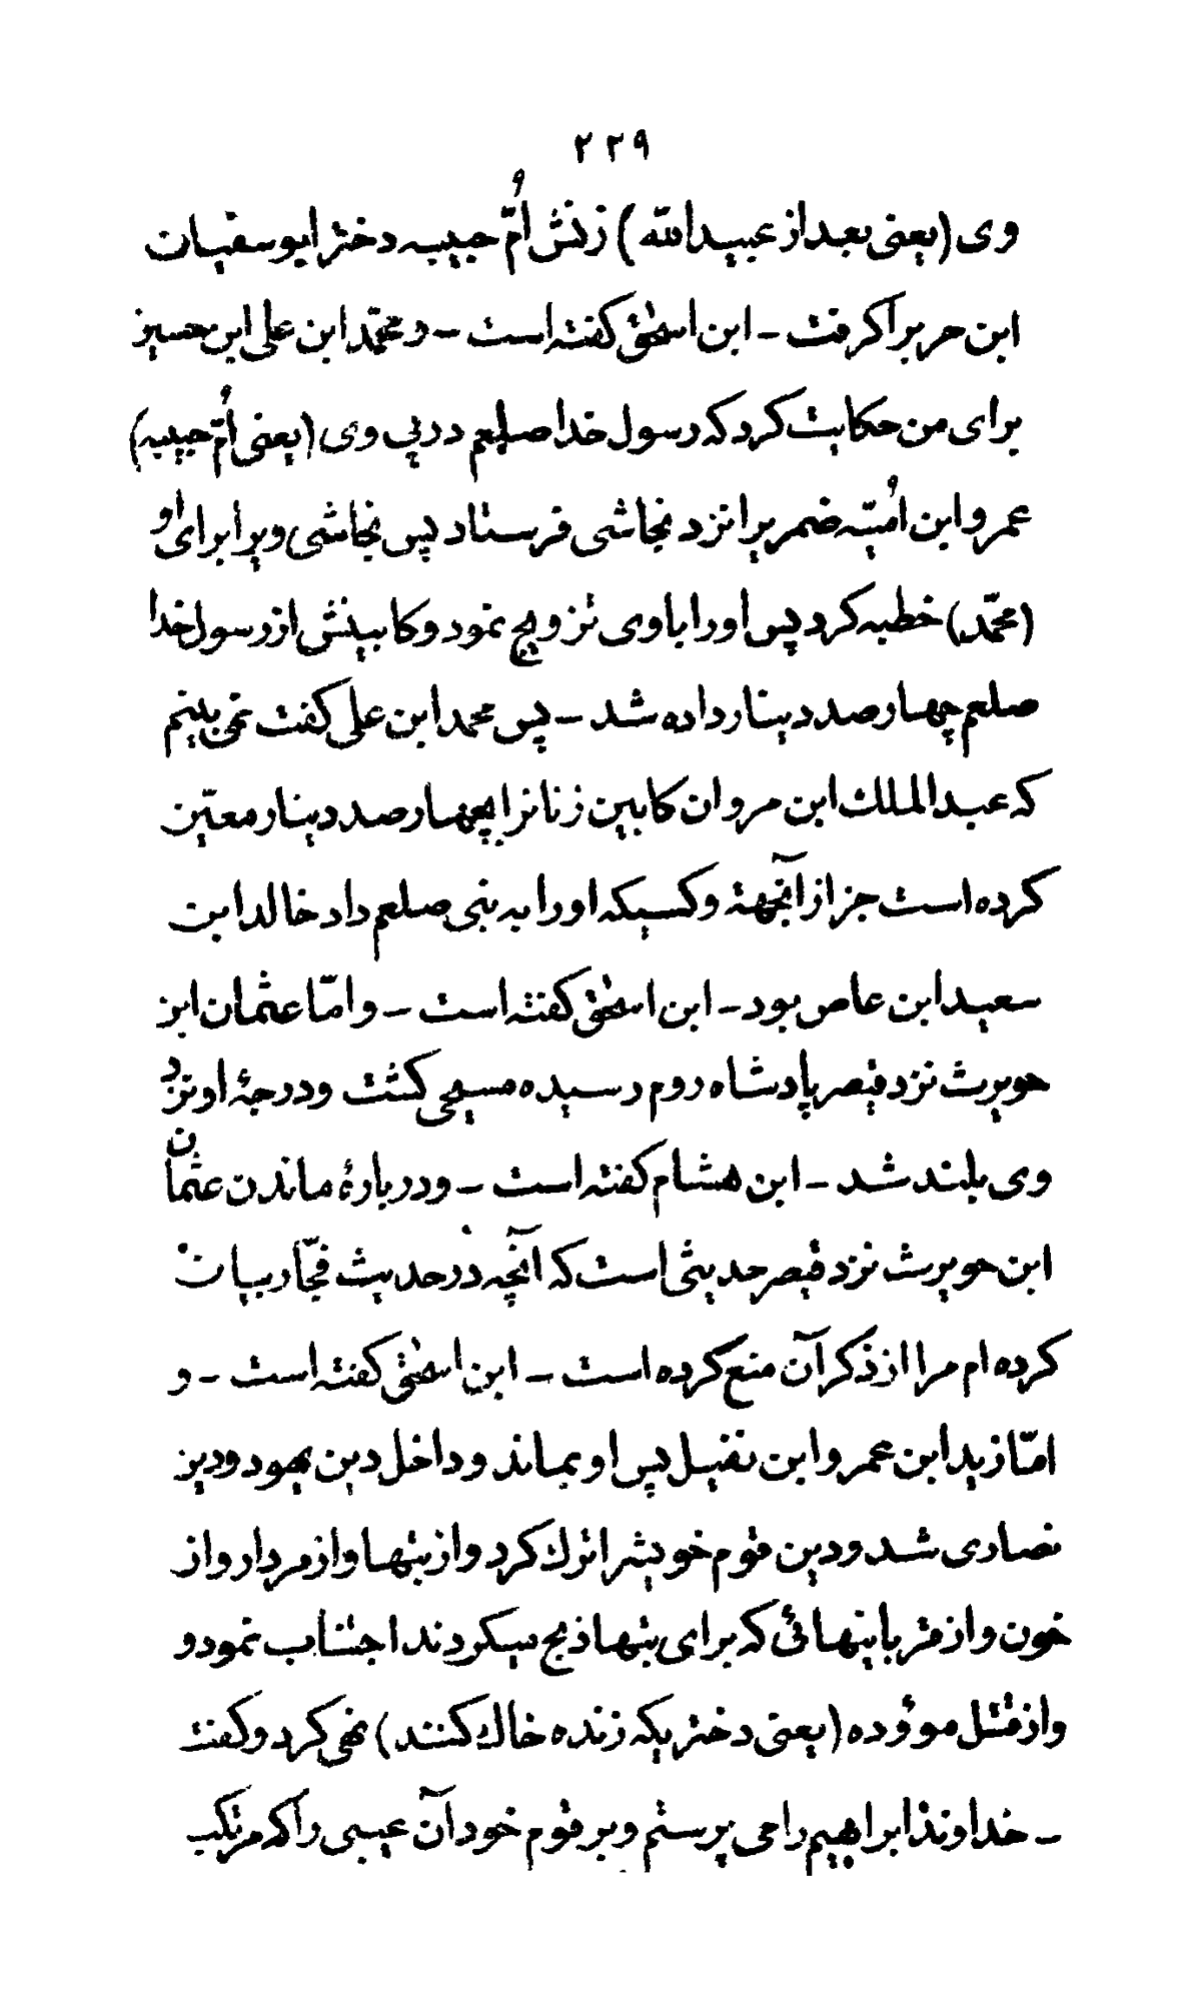 ٢٢٩
وی (یعنی بعد از عبیدالله) زنش اُمّ حبیبه دختر ابو سفیان
ابن حربرا گرفت – ابن اسحٰق گفته است – و محمّد ابن علی ابن حسین
برای من حکایت کرد که رسول خدا صلعم در پی وی (یعنی اُمّ حبیبه)
عمرو ابن اُمیّه ضمریرا نزد نجاشی فرستاد پس نجاشی ویرا برای او
(محمّد) خطبه کرد پس اورا باوی تزویج نمود و کابینش از رسول خدا
صلعم چهار صد دینار داده شد – پس محمد ابن علی گفت نمی بینم
که عبد الملك ابن مروان کابین زنانرا بچهار صد دینار معیّن
کرده است جز از آنجهة و کسیکه اورا به نبی صلعم داد خالد ابن
سعید ابن عاص بود – ابن اسحٰق گفته است – و امّا عثمان ابن
حویرث نزد قیصر پادشاه روم رسیده مسیحی گشت و درجهٔ او نزد
وی بلند شد – ابن هشام گفته است – و در بارهٔ ماندن عثمان
ابن حویرث نزد قیصر حدیثی است که آنچه در حدیث فجّار بیان
کرده ام مرا از ذکر آن منع کرده است – ابن اسحٰق گفته است – و
امّا زید ابن عمرو ابن نفیل پس او بماند و داخل دین یهود و دین
نصاری شد و دین قوم خویشرا ترك کرد و از بتها و از مردار و از
خون و از قربانیهائی که برای بتها ذبح میکردند اجتناب نمود و
و از قتل موؤده (یعنی دختریکه زنده خاك کنند) نهی کرد و گفت
– خداوند ابراهیم را می پرستم و بر قوم خود آن عیبی را که مرتکب